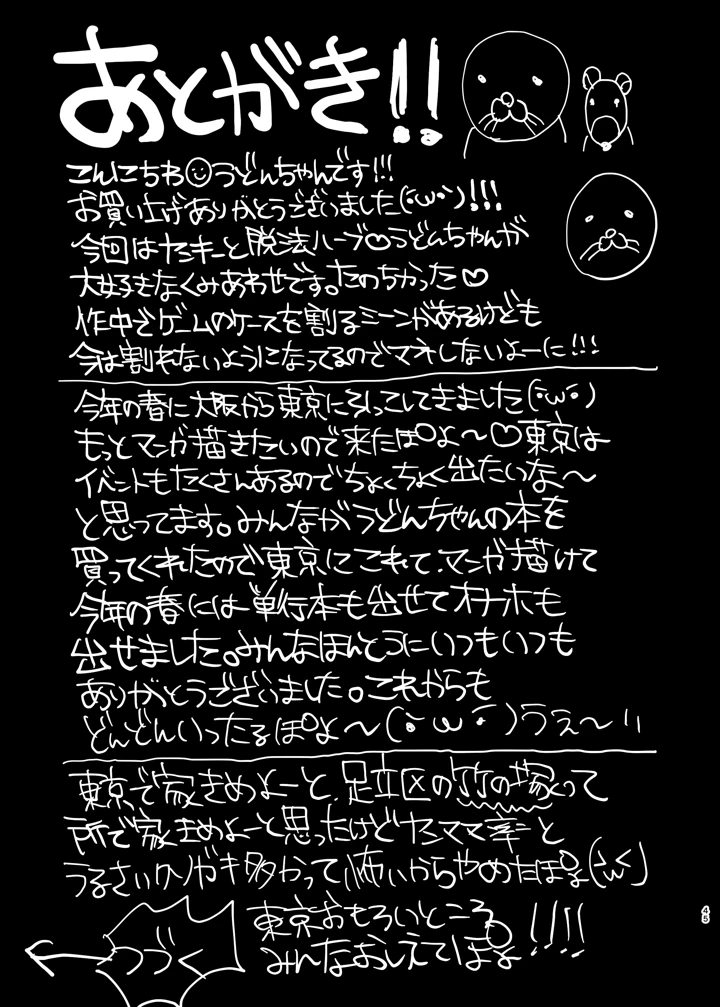 あとがき!!
こんにちわ うどんちゃんです!!!
お買い上げありがとうございました(・ω・)!!!
今回はヤンキーと脱法ハーブ♡うどんちゃんが
大好きなくみあわせです。たのちかった♡
作中でゲームのケースを割るシーンがあるけども
今は割れないようになってるのでマネしないよーに!!!
今年の春に大阪から東京にひっこしてきました(・ω・)
もっとマンガ描きたいので来たぽよ〜♡東京は
イベントもたくさんあるのでちょくちょく出たいな〜
と思ってます。みんながうどんちゃんの本を
買ってくれたので東京にこれて、マンガ描けて
今年の春には単行本も出せてオナホも
出せました。みんなほんとうにいつもいつも
ありがとうございました。これからも
どんどんいったるぽよ〜(・ω・)うぇ〜!!
東京で家きめよーと、足立区の竹の塚って
所で家きめよーと思ったけどヤンママ率と
うるさいクソガキ多かって怖いからやめたぽよ
東京おもろいところ
みんなおしえてぽよ!!!!
つづく
45